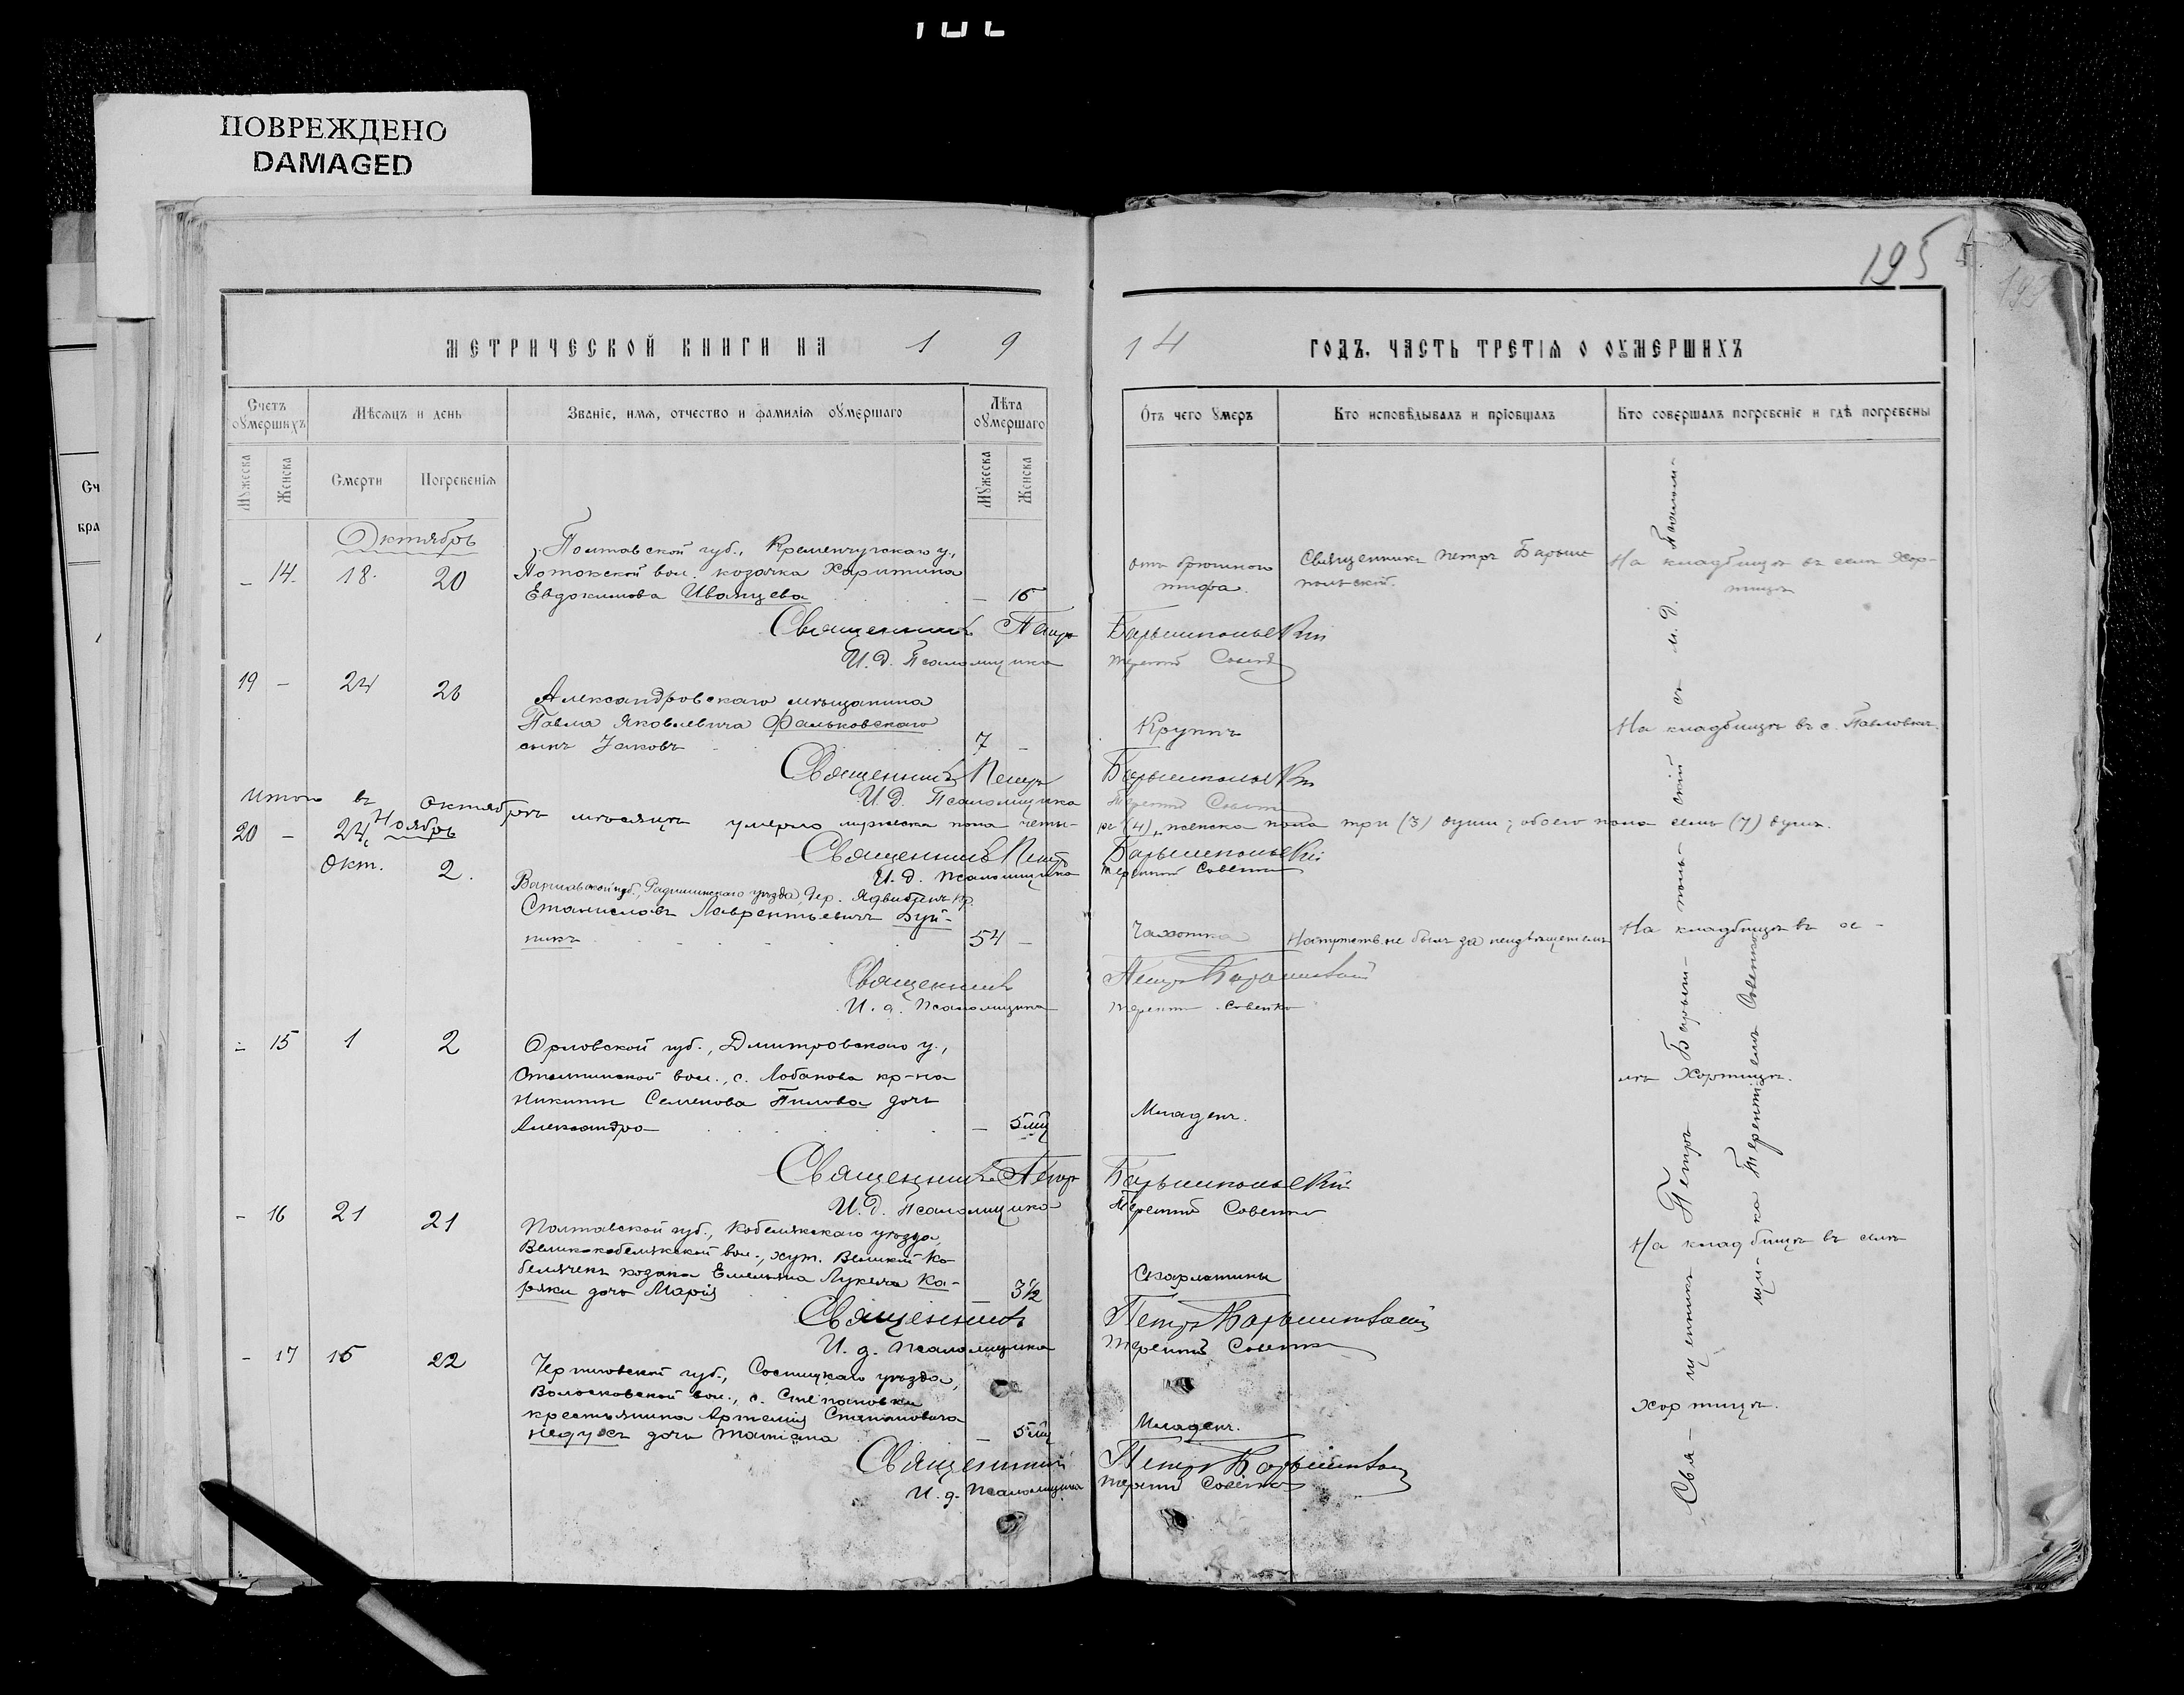 ПОВРЕЖДЕНО
DAMAGED
195
МЕТРИЧЕСКОЙ КНИГИ НА 19
14 ГОДЪ, ЧАСТЬ ТРЕТІЯ О ОУМЕРШИХЪ
Счетъ оумершихъ
Мѣсяцъ и день
Званіе, имя, отчество и фамилія оумершаго
Лѣта оумершаго
Отъ чего умеръ
Кто исповѣдывалъ и пріобщалъ
Кто совершалъ погребеніе и гдѣ погребены
Мужеска
Женска
Смерти
Погребенія
Мужеска
Женска
Октябрь
– 14. 18. 20
Полтавской губ., Кременчугскаго у.,
Потокской вол. козачка Харитина
Евдокимова Иванцева – 16
отъ брюшного
тифа.
Священникъ Петръ Барыш
польскій.
На кладбищѣ въ селѣ Хор-
тицѣ
Священникъ Петръ Барышпольскій
И. д. Псаломщика Терентій
19 – 24 26
Александровскаго мѣщанина
Павла Яковлевича Фальковскаго
сынъ Іаковъ 7 –
Крупъ
На кладбищѣ въ с. Павловкѣ.
Священникъ Петръ Барышпольскій
И. д. Псаломщика Терентій
Итого въ Октябрѣ мѣсяцѣ умерло мужеска пола четы-
ре (4), женска пола три (3) души; обоего пола семь (7) душъ.
Священникъ Петръ Барышпольскій
И. д. псаломщика Терентій Совенко
Ноябрь
20 – 24 Окт. 2.
Варшавской губ., Радиминскаго уѣзда, дер. кр.
Станиславъ Лаврентьевичъ Буй-
никъ 54 –
Чахотка
не былъ за
На кладбищѣ въ се-
Священникъ Петръ
И. д. Псаломщика Терентій Совенко
– 15 1 2
Орловской губ., Дмитровскаго у.,
вол., с. Лобанова кр-на
Никиты Семенова Пилова дочь
Александра – 5 мц
Младенч.
лѣ Хортицѣ.
Священникъ Петръ Барышпольскій
И. д. Псаломщика Терентій Совенко
– 16 21 21
Полтавской губ., Кобелякскаго уѣзда,
Великокобелякской вол., хут. Великій Ко-
белячекъ козака Емельяна Лукича Ка-
ряки дочь Марія 3½
Скарлатины
На кладбищѣ въ селѣ
Священникъ Петръ
И. д. псаломщика Терентій Совенко
– 17 15 22
Черниговской губ., Сосницкаго уѣзда,
Волосковской вол., с. Степановки
крестьянина Артемія Степановича
дочь Татіана – 5 мц
Младенч.
Хортицѣ.
Священникъ Петръ
И. д. Псаломщика Терентій Совенко
Свя-щенникъ Петръ Барыш-поль-скій съ и. д. Псалом-
щи-ка Терентіемъ Совенко